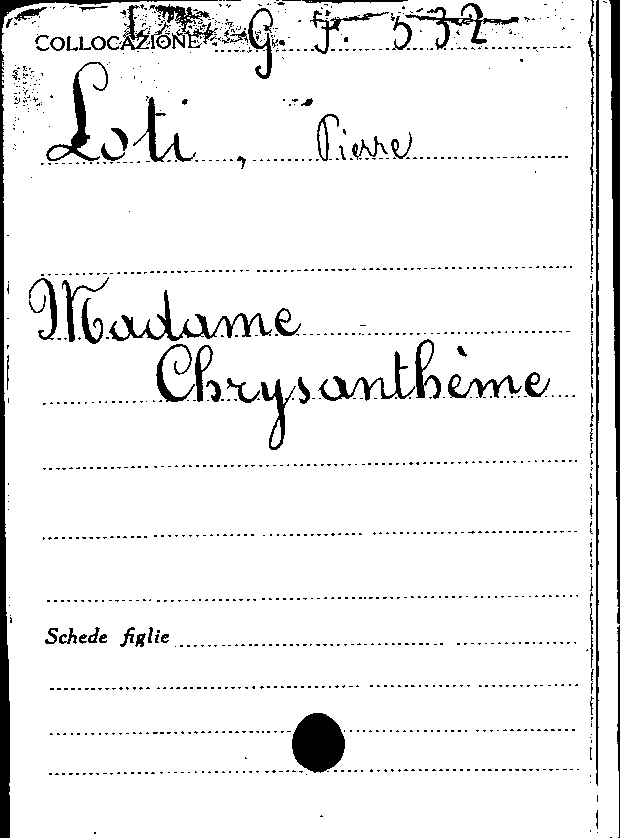 COLLOCAZIONE G. F. 532
Loti, Pierre
Madame
Chrysanthème
Schede figlie